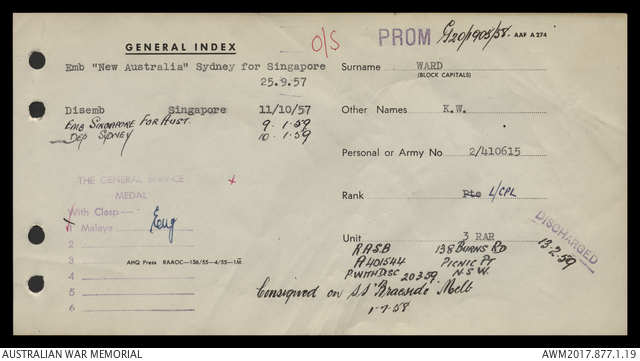 GENERAL INDEX
O/S
PROM G20/1905/58. AAF A 274
Emb "New Australia" Sydney for Singapore
25.9.57
Surname WARD
(BLOCK CAPITALS)
Disemb Singapore 11/10/57
EMB SINGAPORE FOR AUST. 9.1.59
DEP SYDNEY 10.1.59
Other Names K.W.
Personal or Army No 2/410615
THE GENERAL SERVICE
MEDAL
With Clasp
1 Malaya
2
3
4
5
6
Rank Pte L/CPL
DISCHARGED
13.2.59
Unit 3 RAR
RASB 138 BURNS RD
A401544 PICNIC PT
P WITH DISC 20359 N.S.W.
AHQ Press RAAOC—136/55—4/55—1M
Consigned on SS "Braeside" Melb
1-7-58
AUSTRALIAN WAR MEMORIAL
AWM2017.877.1.19